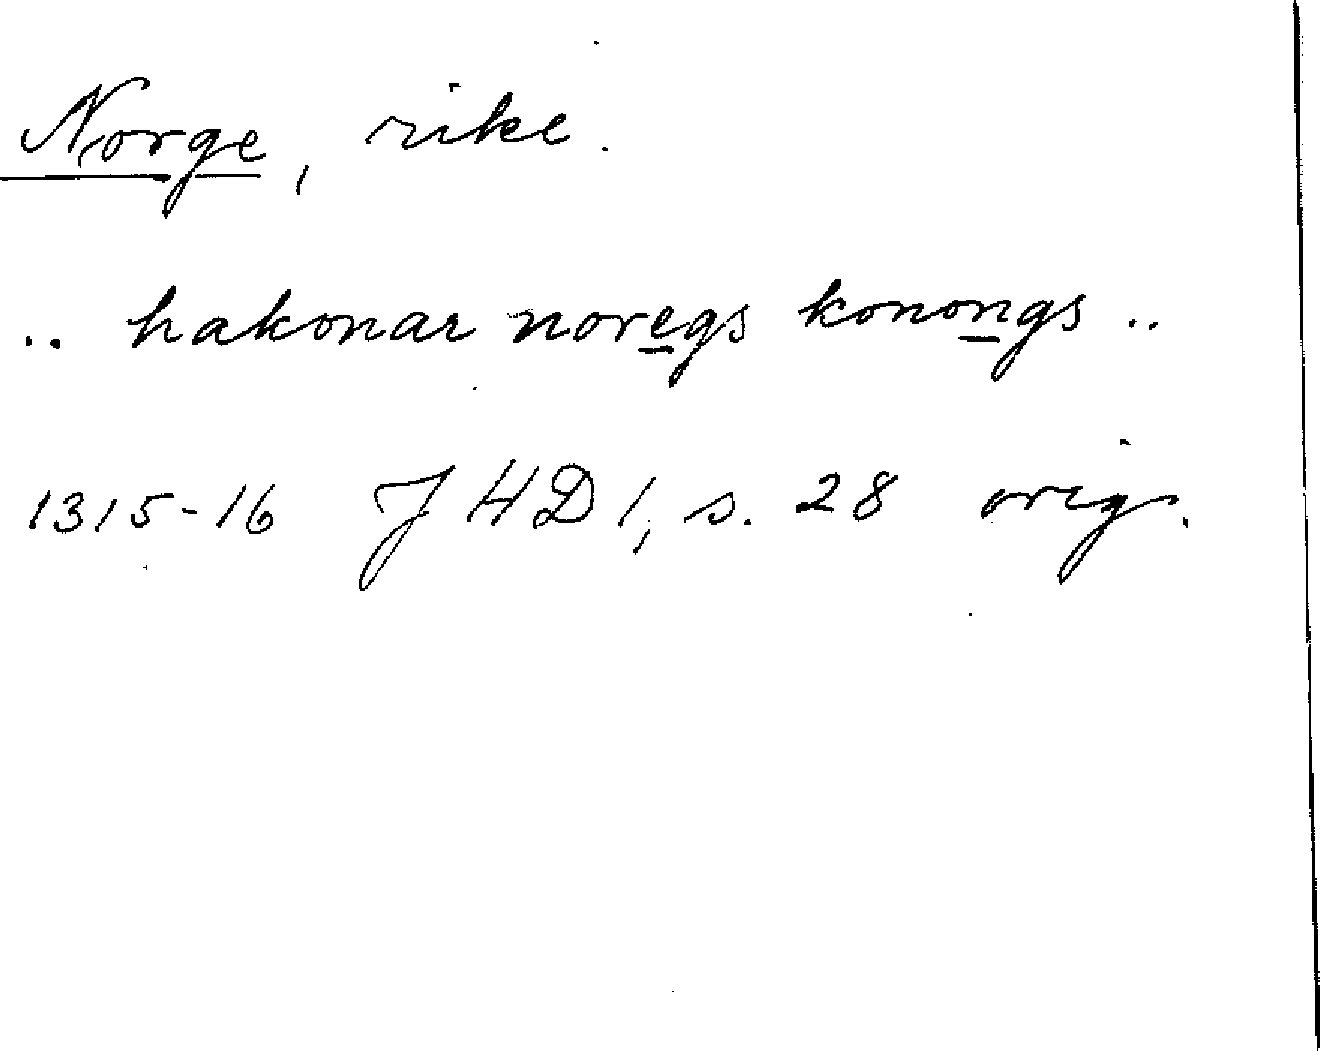 Norge, rike.
.. hakonar noregs konongs ..
1315-16 JHD 1, s. 28 orig.